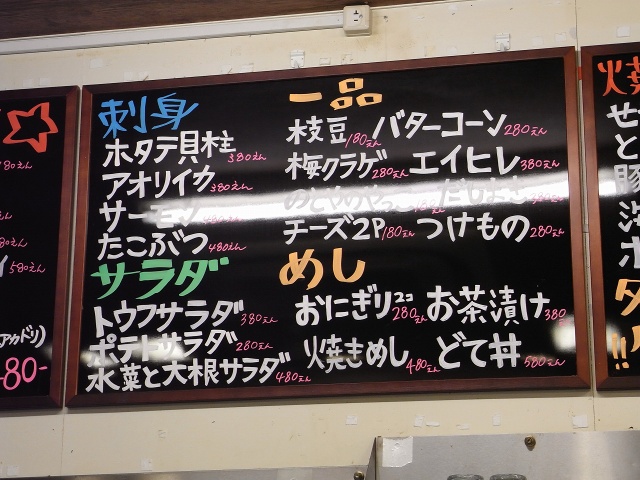 刺身
ホタテ貝柱 380えん
アオリイカ 380えん
サーモン
たこぶつ 480えん
サラダ
トウフサラダ 380えん
ポテトサラダ 280えん
水菜と大根サラダ 480えん
一品
枝豆 180えん バターコーン 280えん
梅クラゲ 280えん エイヒレ 380えん
チーズ2P 180えん つけもの 280えん
めし
おにぎり2コ 280えん お茶漬け 380
焼きめし 480えん どて丼 580えん
580えん
-80-